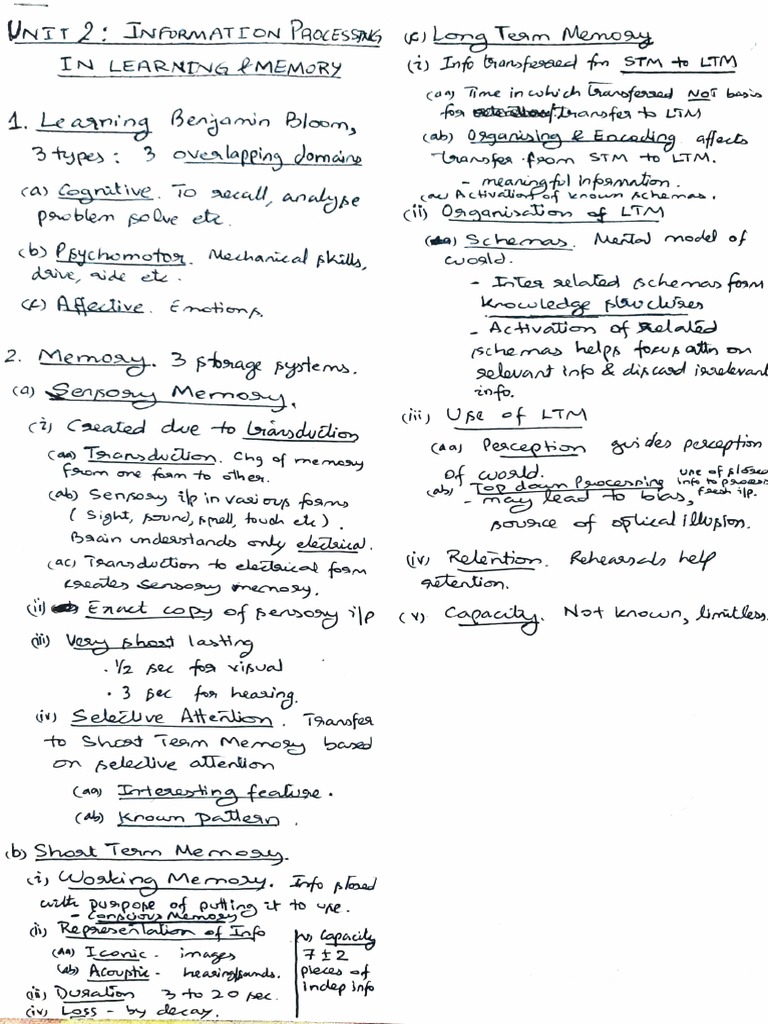 UNIT 2: INFORMATION PROCESSING
IN LEARNING & MEMORY
1. Learning Benjamin Bloom,
3 types: 3 overlapping domains
(a) Cognitive. To recall, analyse
problem solve etc.
(b) Psychomotor. Mechanical skills,
drive, ride etc.
(c) Affective. Emotions.
2. Memory. 3 storage systems.
(a) Sensory Memory.
(i) Created due to transduction
(aa) Transduction. Chg of memory
from one form to other.
(ab) Sensory i/p in various forms
(Sight, sound, smell, touch etc).
Brain understands only electrical.
(ac) Transduction to electrical form
creates sensory memory.
(ii) Exact copy of sensory i/p
(iii) Very short lasting
. 1/2 sec for visual
. 3 sec for hearing.
(iv) Selective Attention. Transfer
to Short Term Memory based
on selective attention
(aa) Interesting feature.
(ab) Known pattern.
(b) Short Term Memory.
(i) Working Memory. Info stored
with purpose of putting it to use.
- Conscious Memory
(ii) Representation of Info
(aa) Iconic - images
(ab) Acoustic - hearing/sounds.
(iii) Duration 3 to 20 sec.
(iv) Loss - by decay.
(v) Capacity
7 ± 2
pieces of
indep info
(c) Long Term Memory
(i) Info transferred fm STM to LTM
(aa) Time in which transferred NOT basis
for transfer to LTM
(ab) Organising & Encoding affects
transfer from STM to LTM.
- meaningful information.
(ac) Activation of known schemas.
(ii) Organisation of LTM
(aa) Schemas. Mental model of
world.
- Inter related schemas form
knowledge structures
- Activation of related
schemas helps focus attn on
relevant info & discard irrelevant
info.
(iii) Use of LTM
(aa) Perception guides perception
of world.
(ab) Top down Processing use of stored
info to process
fresh i/p.
- may lead to bias,
source of optical illusion.
(iv) Retention. Rehearsals help
retention.
(v) Capacity. Not known, limitless.